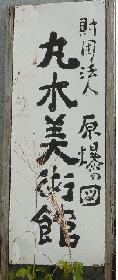 財団法人 原爆の図
丸木美術館